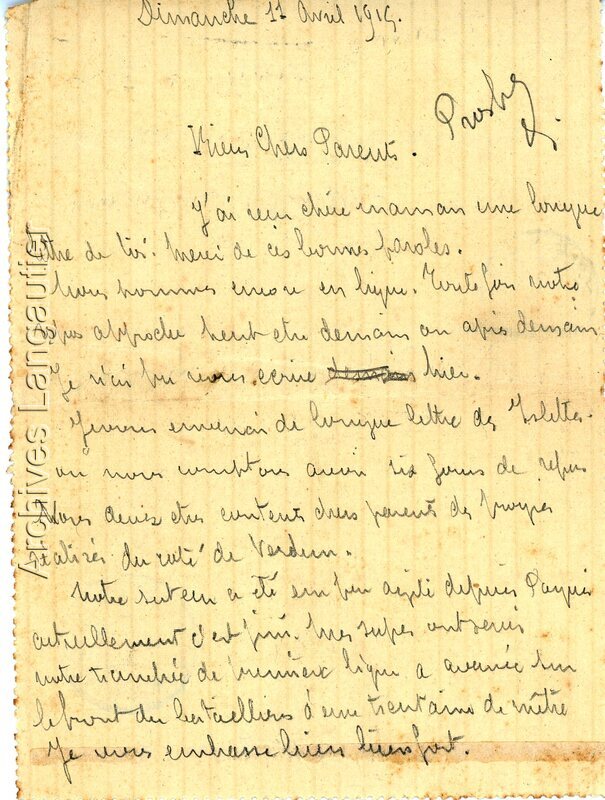 Dimanche 11 Avril 1915.
Biens Chers Parents.
J'ai reçu chère maman une longue
lettre de toi. Merci de ces bonnes paroles.
Nous sommes encore en ligne. Toutefois notre
repos approche peut etre demain ou après demain
Je n'ai pu vous ecrire hier.
Je vous enverrai de longue lettre des Islettes
ou nous comptons avoir six jours de repos
Vous devez etre contents chers parents des progres
réalisés du coté de Verdun.
Notre secteur a été un peu agité depuis Paques
actuellement c'est fini. Mes sapes ont servis
notre tranchée de première ligne a avancé sur
le front du bataillon d'une trentaine de mètre
Je vous embrasse biens biens fort.
Archives Lançautier